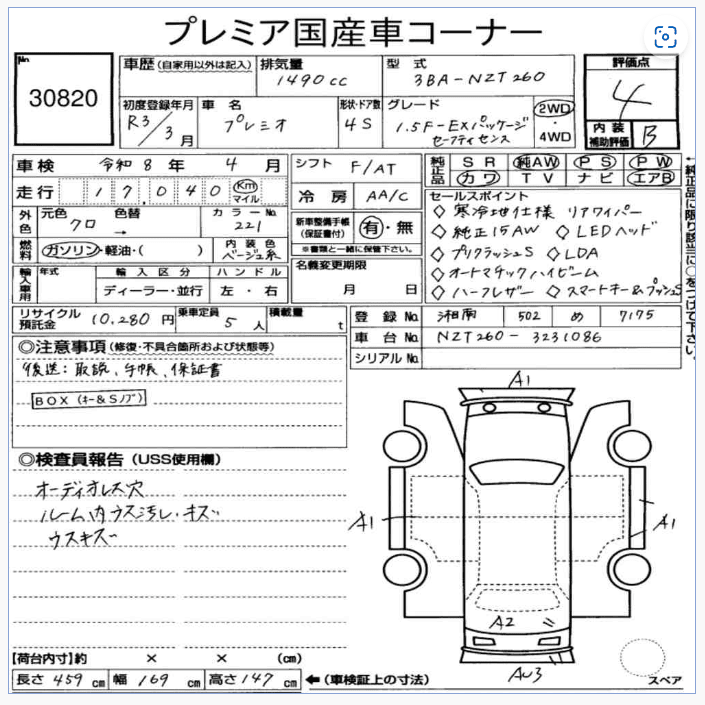 プレミア国産車コーナー
No.
30820
車歴 (自家用以外は記入)
排気量
1490cc
型式
3BA-NZT260
評価点
4
内装
補助評価
B
初度登録年月
R3/3月
車名
プレミオ
形状・ドア数
4S
グレード
1.5F-EXパッケージ
セーフティセンス
2WD
・
4WD
車検 令和8年 4月
シフト F/AT
純正品 SR 純AW PS PW
カワ TV ナビ エアB
走行 17,040 Km マイル
冷房 AA/C
セールスポイント
◇寒冷地仕様 リアワイパー
◇純正15AW ◇LEDヘッド
◇プリクラッシュS ◇LDA
◇オートマチックハイビーム
◇ハーフレザー ◇スマートキー&プッシュS
←純正品に限り該当に○をつけて下さい。
外色
元色 クロ
色替 →
カラーNo. 221
新車整備手帳
(保証書付)
有・無
※書類と一緒に保管下さい。
燃料
ガソリン・軽油・( )
内装色
ベージュ系
名義変更期限
月 日
輸入車用
年式
輸入区分
ディーラー・並行
ハンドル
左・右
リサイクル
預託金
10,280円
乗車定員 5人
積載量 t
登録No. 湘南 502 め 7175
車台No. NZT260-3231086
シリアルNo.
◎注意事項 (修復・不具合箇所および状態等)
後送:取説、手帳、保証書
BOX (キー&Sノブ)
◎検査員報告 (USS使用欄)
オーディオレス穴
ルーム内ウス汚レ・キズ
ウスキズ
A1
A1
A1
A2
AU3
スペア
【荷台内寸】約 × × (cm)
長さ 459 cm 幅 169 cm 高さ 147 cm ←(車検証上の寸法)